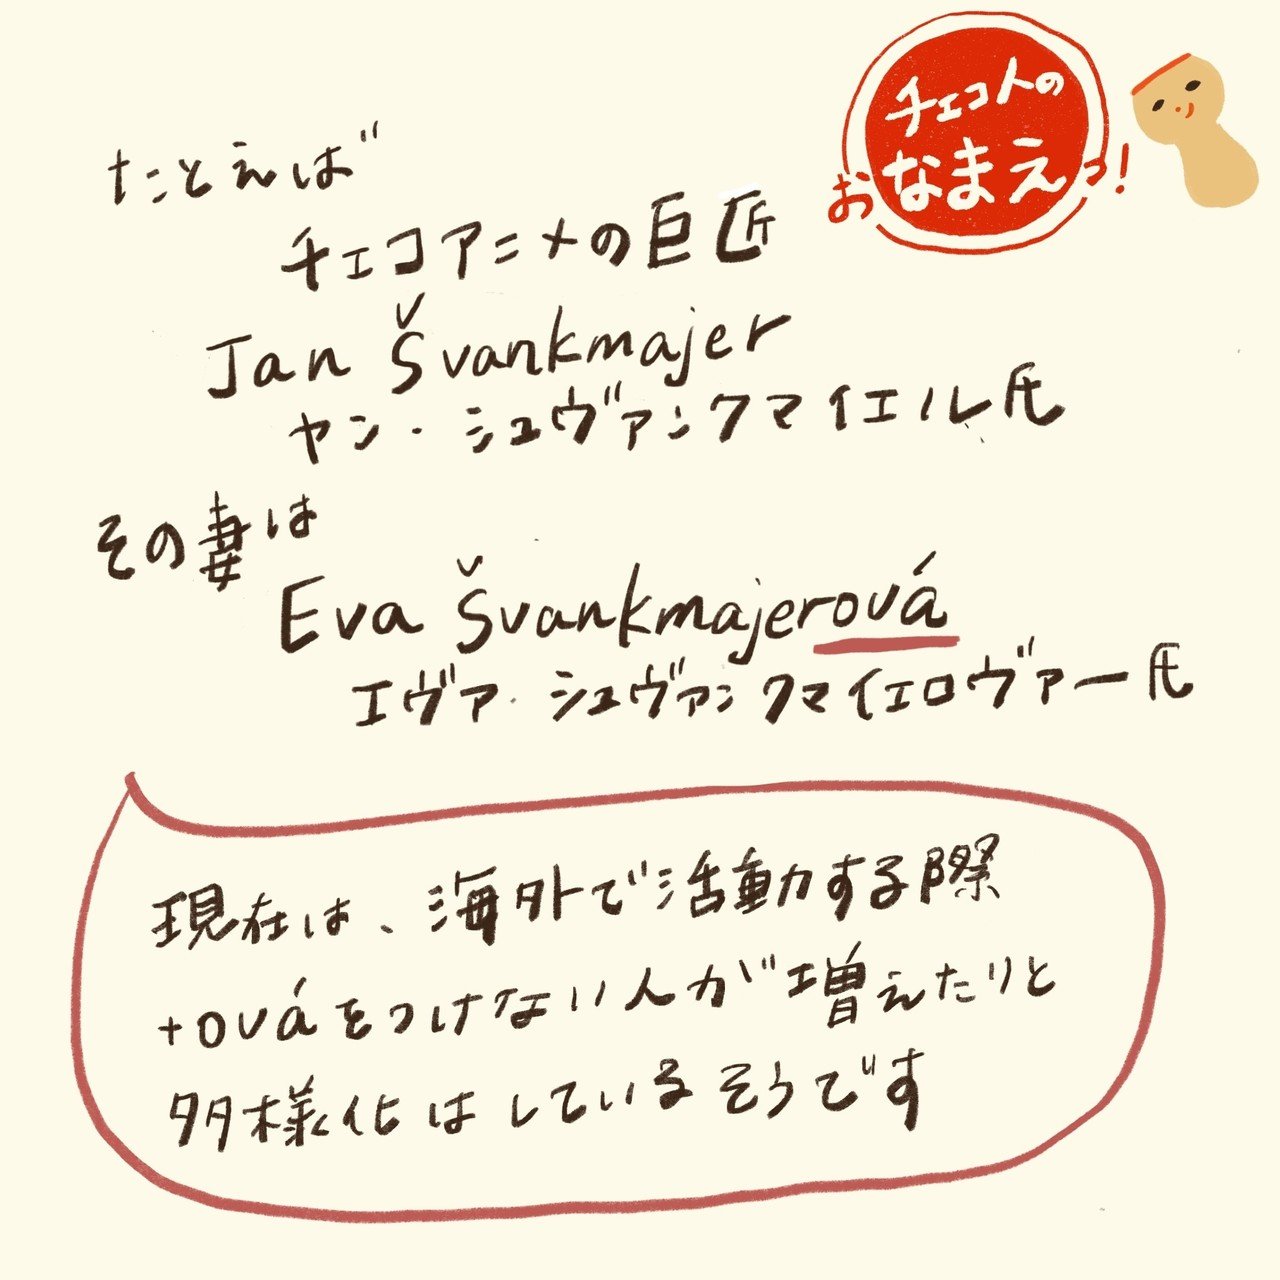 チェコ人の
おなまえっ!
たとえば
チェコアニメの巨匠
Jan Švankmajer
ヤン・シュヴァンクマイエル氏
その妻は
Eva Švankmajerová
エヴァ・シュヴァンクマイェロヴァー氏
現在は、海外で活動する際
+ováをつけない人が増えたりと
多様化はしているそうです